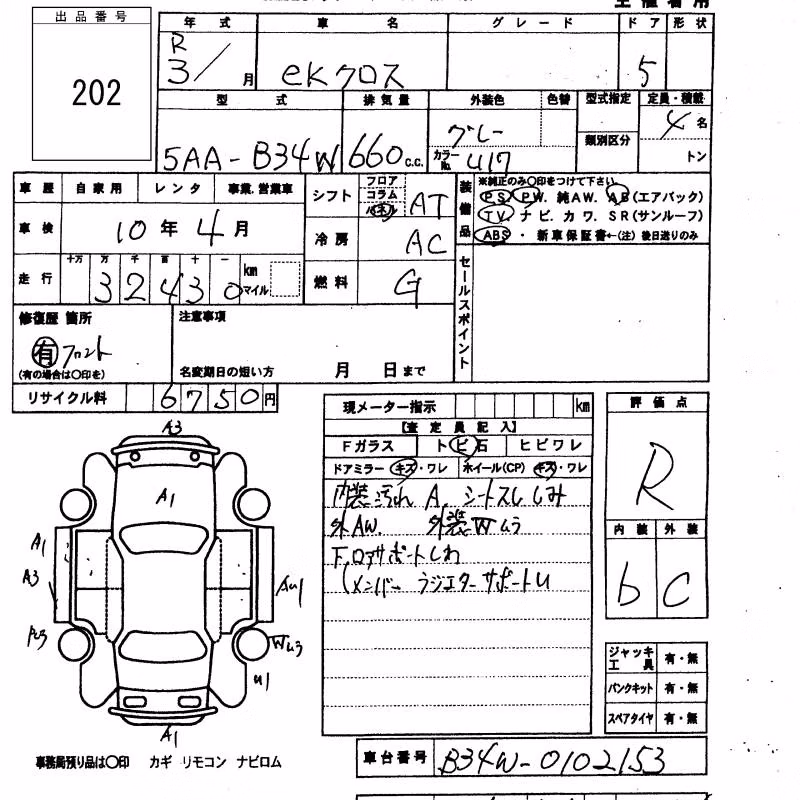 出品番号
202
年式 車名 グレード ドア 形状
R
3/ 月 eKクロス 5
型式 排気量 外装色 色替 型式指定 定員・積載
類別区分
5AA-B34W 660 c.c. グレー 4名
カラーNo. U17 トン
車歴 自家用 レンタ 事業.営業車
シフト フロア コラム パネル AT
車検 10年4月
冷房 AC
走行 十万 万 千 百 十 一
32430 km マイル
燃料 G
装備品
※純正のみ〇印をつけて下さい
PS. PW. 純AW. AB(エアバック)
TV. ナビ. カワ. SR(サンルーフ)
ABS ・ 新車保証書←(注) 後日送りのみ
セールスポイント
修復歴 箇所 注意事項
有 フロント
(有の場合は〇印を) 名変期日の短い方 月 日まで
リサイクル料 6750円
現メーター指示 km
【査定員記入】
Fガラス トビ石 ヒビワレ
ドアミラー キズ・ワレ ホイール(CP) キズ・ワレ
内装汚れ A. シートスレ しみ
外AW. 外装Wムラ
F.ロアサポートしわ
(メンバー ラジエターサポートU
評価点
R
内装 外装
b C
A3
A1
A1
A3
AU1
Wムラ
U1
A1
ジャッキ工具 有・無
パンクキット 有・無
スペアタイヤ 有・無
事務局預り品は〇印 カギ リモコン ナビロム
車台番号 B34W-0102153